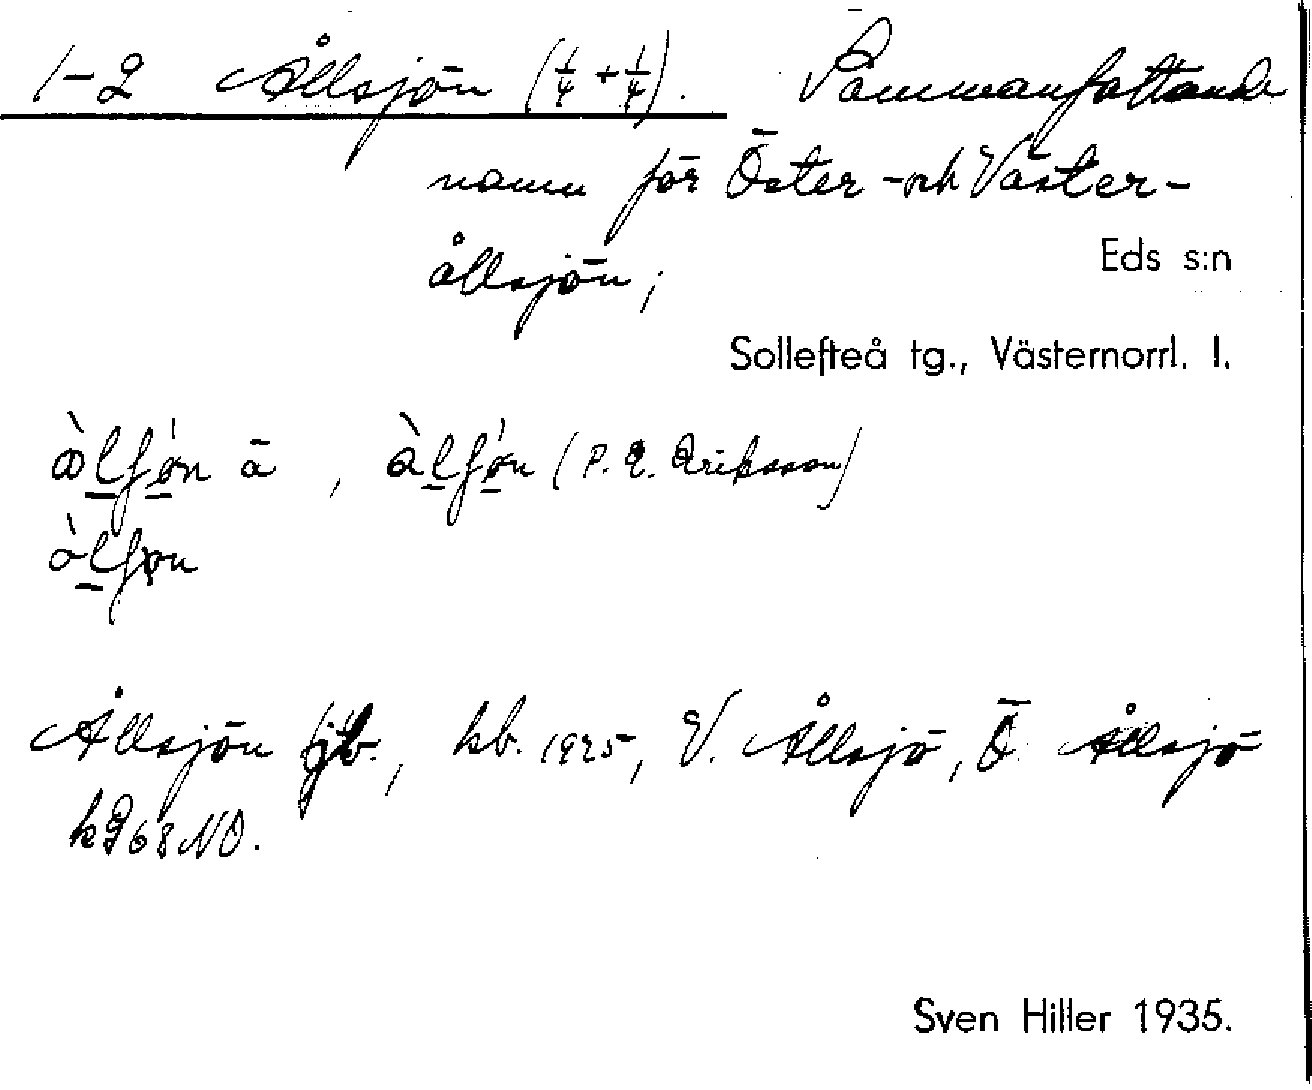 1-2 Ållsjön (1/4 + 1/4). Sammanfattande
namn för Öster- och Väster-
ållsjön;
Eds s:n
Sollefteå tg., Västernorrl. l.
ɷ̀lʃǿn ā, àlʃǿn (P. E. Eriksson)
òlʃøn
Ållsjön jb., kb. 1925, V. Ållsjö, Ö. Ållsjö
k968NO.
Sven Hiller 1935.